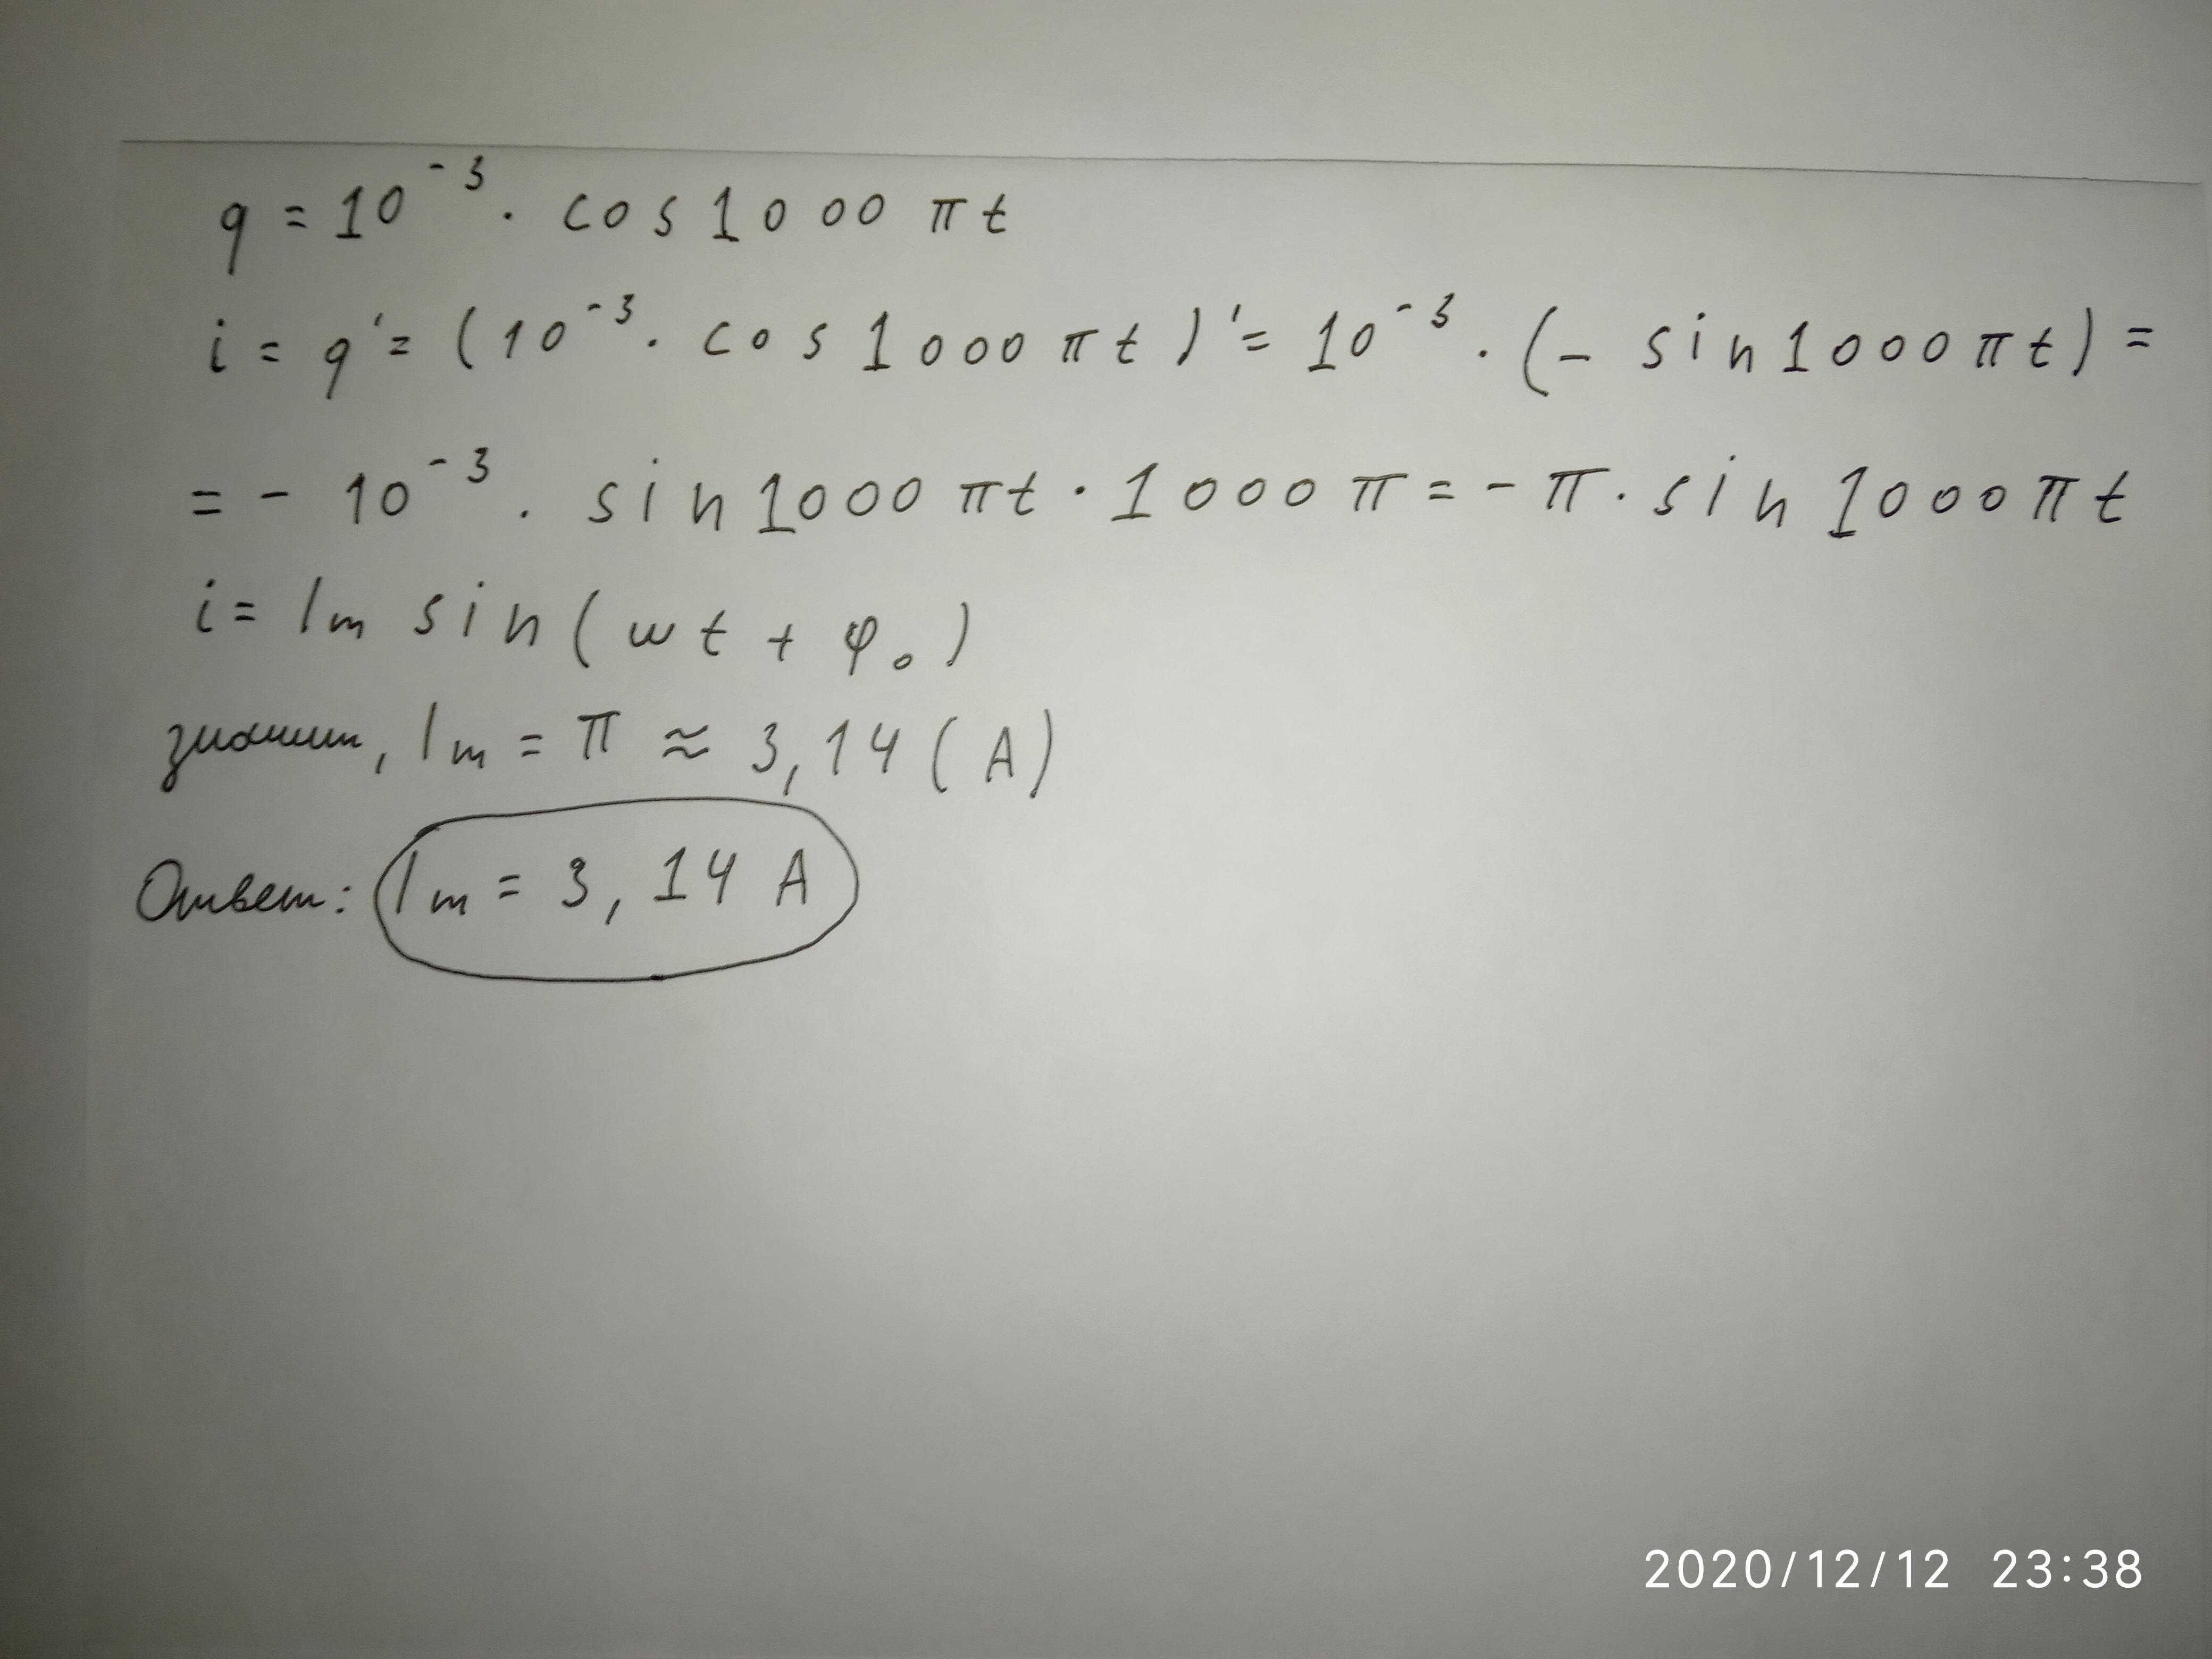 q = 10⁻³ · cos 1000 πt
i = q' = (10⁻³ · cos 1000 πt)' = 10⁻³ · (- sin 1000 πt) =
= - 10⁻³ · sin 1000 πt · 1000 π = - π · sin 1000 πt
i = Im sin(ωt + φ₀)
значит, Im = π ≈ 3,14 (А)
Ответ: Im = 3,14 А
2020/12/12 23:38